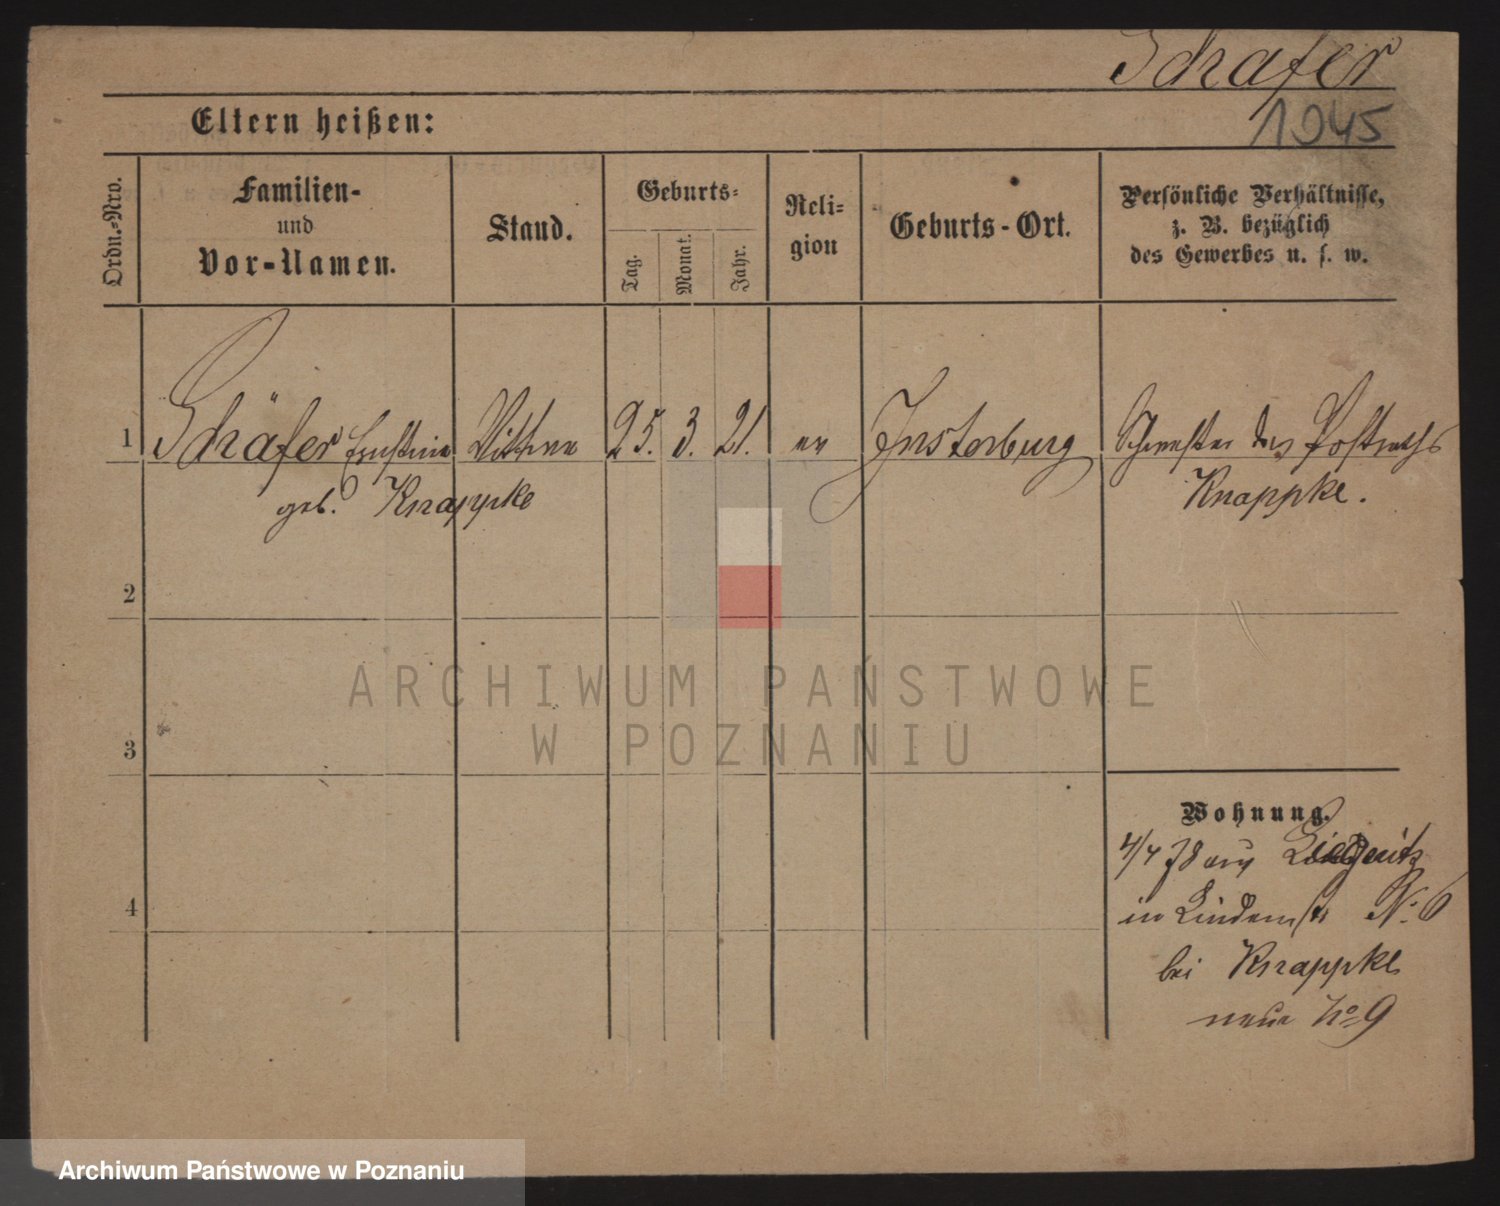 Schäfer
1045
Eltern heißen:
Ordn.-Nro.
Familien-
und
Vor-Namen.
Stand.
Geburts-
Tag.
Monat.
Jahr.
Reli-
gion
Geburts-Ort.
Persönliche Verhältnisse,
z. B. bezüglich
des Gewerbes u. s. w.
1 Schäfer Ernstine Wittwe 25. 3. 21. ev Insterburg Schwester des Postraths
geb. Knappke Knappke.
2
3
Wohnung.
4/4 78 aus Liegnitz
4
in Lindenstr No. 6
bei Knappke
neue No 9
ARCHIWUM PAŃSTWOWE
W POZNANIU
Archiwum Państwowe w Poznaniu